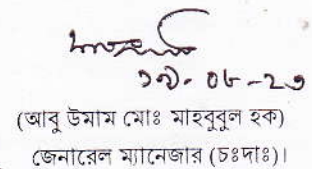 (আবু উমাম মোঃ মাহবুবুল হক)
জেনারেল ম্যানেজার (চঃদাঃ)।